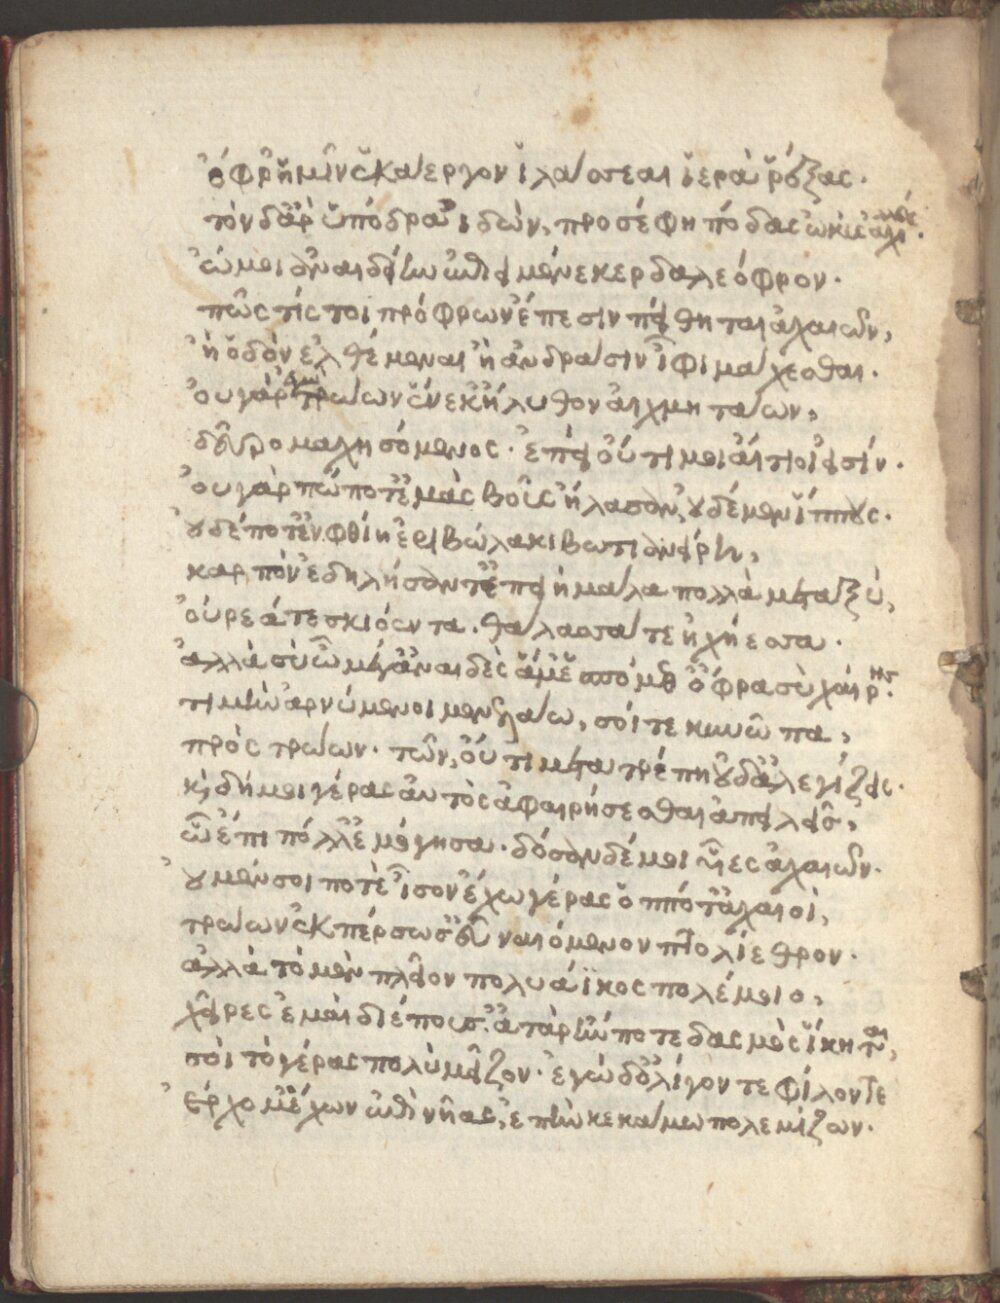 ὄφρ' ἥμιν ἑκάεργον ἱλάσσεαι ἱερὰ ῥέξας.
τὸν δ' ἄρ' ὑπόδρα ἰδὼν, προσέφη πόδας ὠκὺς ἀχιλλεύς.
ὤ μοι ἀναιδείην ἐπιειμένε κερδαλεόφρον.
πῶς τίς τοι πρόφρων ἔπεσιν πείθηται ἀχαιῶν,
ἢ ὁδὸν ἐλθέμεναι ἢ ἀνδράσιν ἶφι μάχεσθαι.
οὐ γὰρ ἐγὼ τρώων ἕνεκ' ἤλυθον αἰχμητάων,
δεῦρο μαχησόμενος. ἐπεὶ οὔ τι μοι αἴτιοι εἰσίν.
οὐ γὰρ πώποτ' ἐμὰς βοῦς ἤλασαν, οὐδὲ μὲν ἵππους.
οὐδέ ποτ' ἐν φθίῃ ἐριβώλακι βωτιανείρῃ,
καρπὸν ἐδηλήσαντ' ἐπειὴ μάλα πολλὰ μεταξὺ,
οὔρεά τε σκιόεντα. θάλασσά τε ἠχήεσσα.
ἀλλὰ σὺ ὦ μέγ' ἀναιδὲς ἅμ' ἑσπόμεθ' ὄφρα σὺ χαίρης.
τιμὴν ἀρνύμενοι μενελάω, σοί τε κυνῶπα,
πρὸς τρώων. τῶν, οὔ τι μετατρέπῃ οὐδ' ἀλεγίζεις.
καὶ δή μοι γέρας αὐτὸς ἀφαιρήσεσθαι ἀπειλεῖς,
ᾧ ἔπι πόλλ' ἐμόγησα. δόσαν δέ μοι υἷες ἀχαιῶν.
οὐ μέν σοι ποτὲ ἶσον ἔχω γέρας ὁππότ' ἀχαιοὶ,
τρώων ἐκπέρσωσ' εὖ ναιόμενον πτολίεθρον.
ἀλλὰ τὸ μὲν πλεῖον πολυάϊκος πολέμοιο,
χεῖρες ἐμαὶ διέπουσ'. ἀτὰρ ἤν ποτε δασμὸς ἵκηται,
σοὶ τὸ γέρας πολὺ μεῖζον. ἐγὼ δ' ὀλίγον τε φίλον τε
ἔρχομ' ἔχων ἐπὶ νῆας, ἐπὴν κεκάμω πολεμίζων.